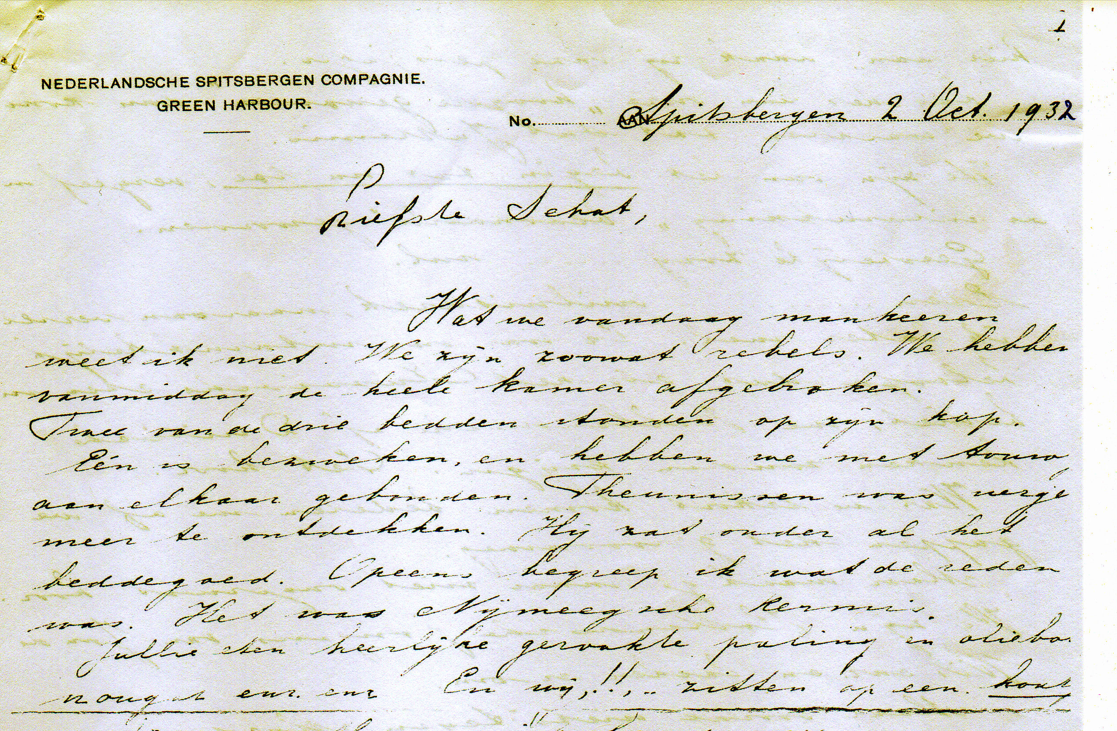 1
NEDERLANDSCHE SPITSBERGEN COMPAGNIE.
GREEN HARBOUR.
No. AAN Spitsbergen 2 Oct. 1932
Liefste Schat,
Wat we vandaag mankeeren
weet ik niet. We zijn zoowat rebels. We hebben
vanmiddag de heele kamer afgebroken.
Twee van de drie bedden stonden op zijn kop.
Eén is bezweken, en hebben we met touw
aan elkaar gebonden. Theunissen was nerge
meer te ontdekken. Hij zat onder al het
beddegoed. Opeens begreep ik wat de reden
was. Het was Nijmeegsche kermis.
Jullie eten heerlijke gerookte paling in oliebo
nougat enz. enz En wij,!!,.. zitten op een